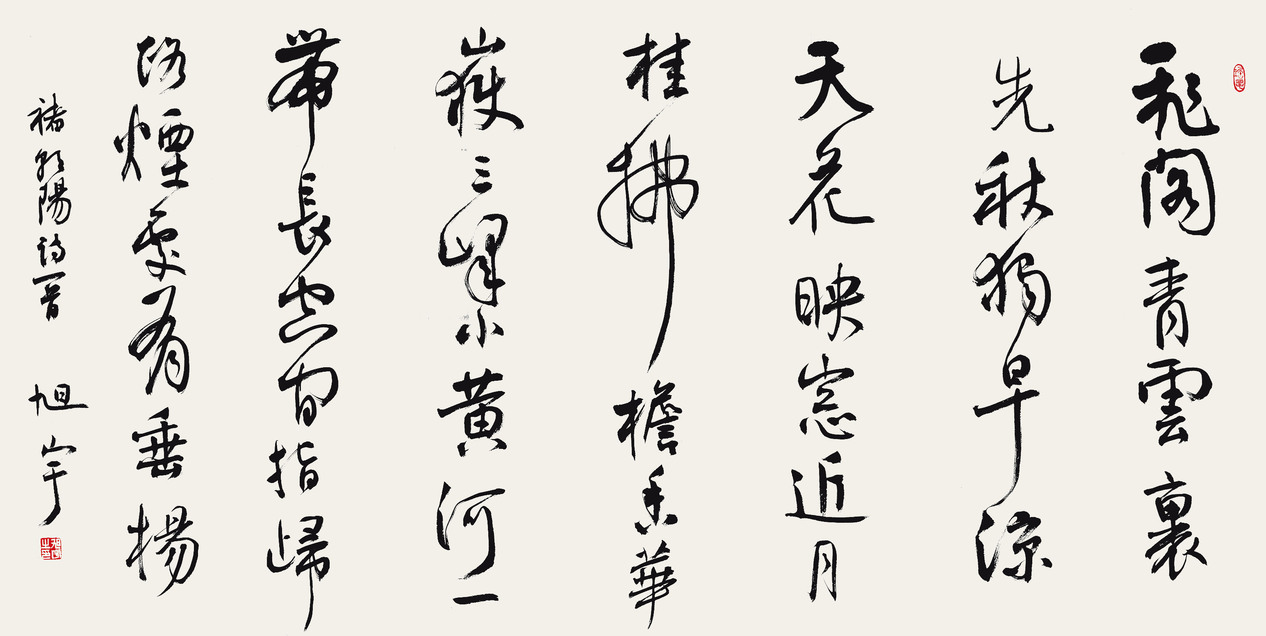 飛閣青雲裏
先秋獨早涼
天花映窓近月
桂拂檐香華
嶽三峰小黃河一
帶長空間指歸
路煙處有垂楊
褚朝陽詩一首 旭宇